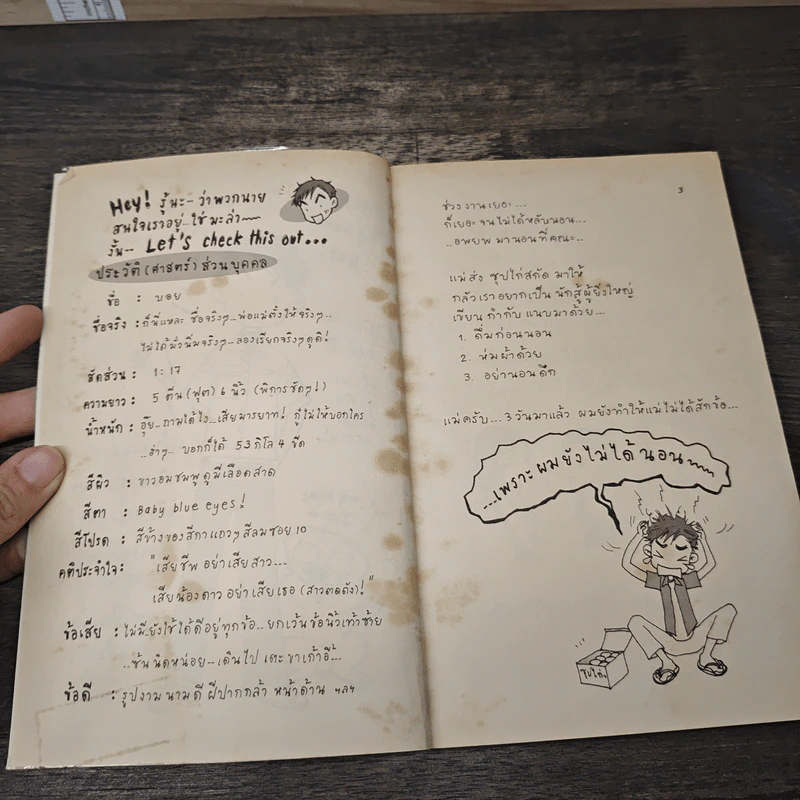 Hey! รู้นะ- ว่าพวกนาย
สนใจเราอยู่..ใช่มะล่า~~
งั้น-- Let's check this out...
ประวัติ(ศาสตร์)ส่วนบุคคล
ชื่อ : บอย
ชื่อจริง : ก็นี่แหละ ชื่อจริงๆ...พ่อแม่ตั้งให้จริงๆ...
ไม่ได้มั่วนิ่มจริงๆ...ลองเรียกจริงๆดูดิ!
สัดส่วน : 1:17
ความยาว : 5 ตีน(ฟุต) 6 นิ้ว (พิการชัดๆ!)
น้ำหนัก : อุ๊ย...ถามได้ไง...เสียมารยาท! กู่ไม่ให้บอกใคร
...ฮ่าๆ... บอกก็ได้ 53 กิโล 4 ขีด
สีผิว : ขาวอมชมพู ดูมีเลือดสาด
สีตา : Baby blue eyes!
สีโปรด : สีข้างของสีกาแถวๆสีลมซอย 10
คติประจำใจ : "เสียชีพ อย่าเสียสาว...
เสียน้องดาว อย่าเสียเธอ (สาวตลอด)!"
ข้อเสีย : ไม่มี..ยังใช้ได้ดีอยู่ทุกข้อ...ยกเว้นข้อนิ้วเท้าซ้าย
...ซ้นนิดหน่อย...เดินไปเตะขาเก้าอี้...
ข้อดี : รูปงาม นามดี ฝีปากกล้า หน้าด้าน ฯลฯ
3
ช่วงงานเยอะ...
ก็เยอะจนไม่ได้หลับนอน...
...อพยพมานอนที่คณะ..
แม่ส่ง ซุปไก่สกัด มาให้
กลัวเราอยากเป็น นักสู้ผู้ยิ่งใหญ่
เขียนกำกับแนบมาด้วย...
1. ดื่มก่อนนอน
2. ห่มผ้าด้วย
3. อย่านอนดึก
แม่ครับ... 3 วันมาแล้ว ผมยังทำให้แม่ไม่ได้สักข้อ...
...เพราะผมยังไม่ได้นอน~~
ซุปไก่